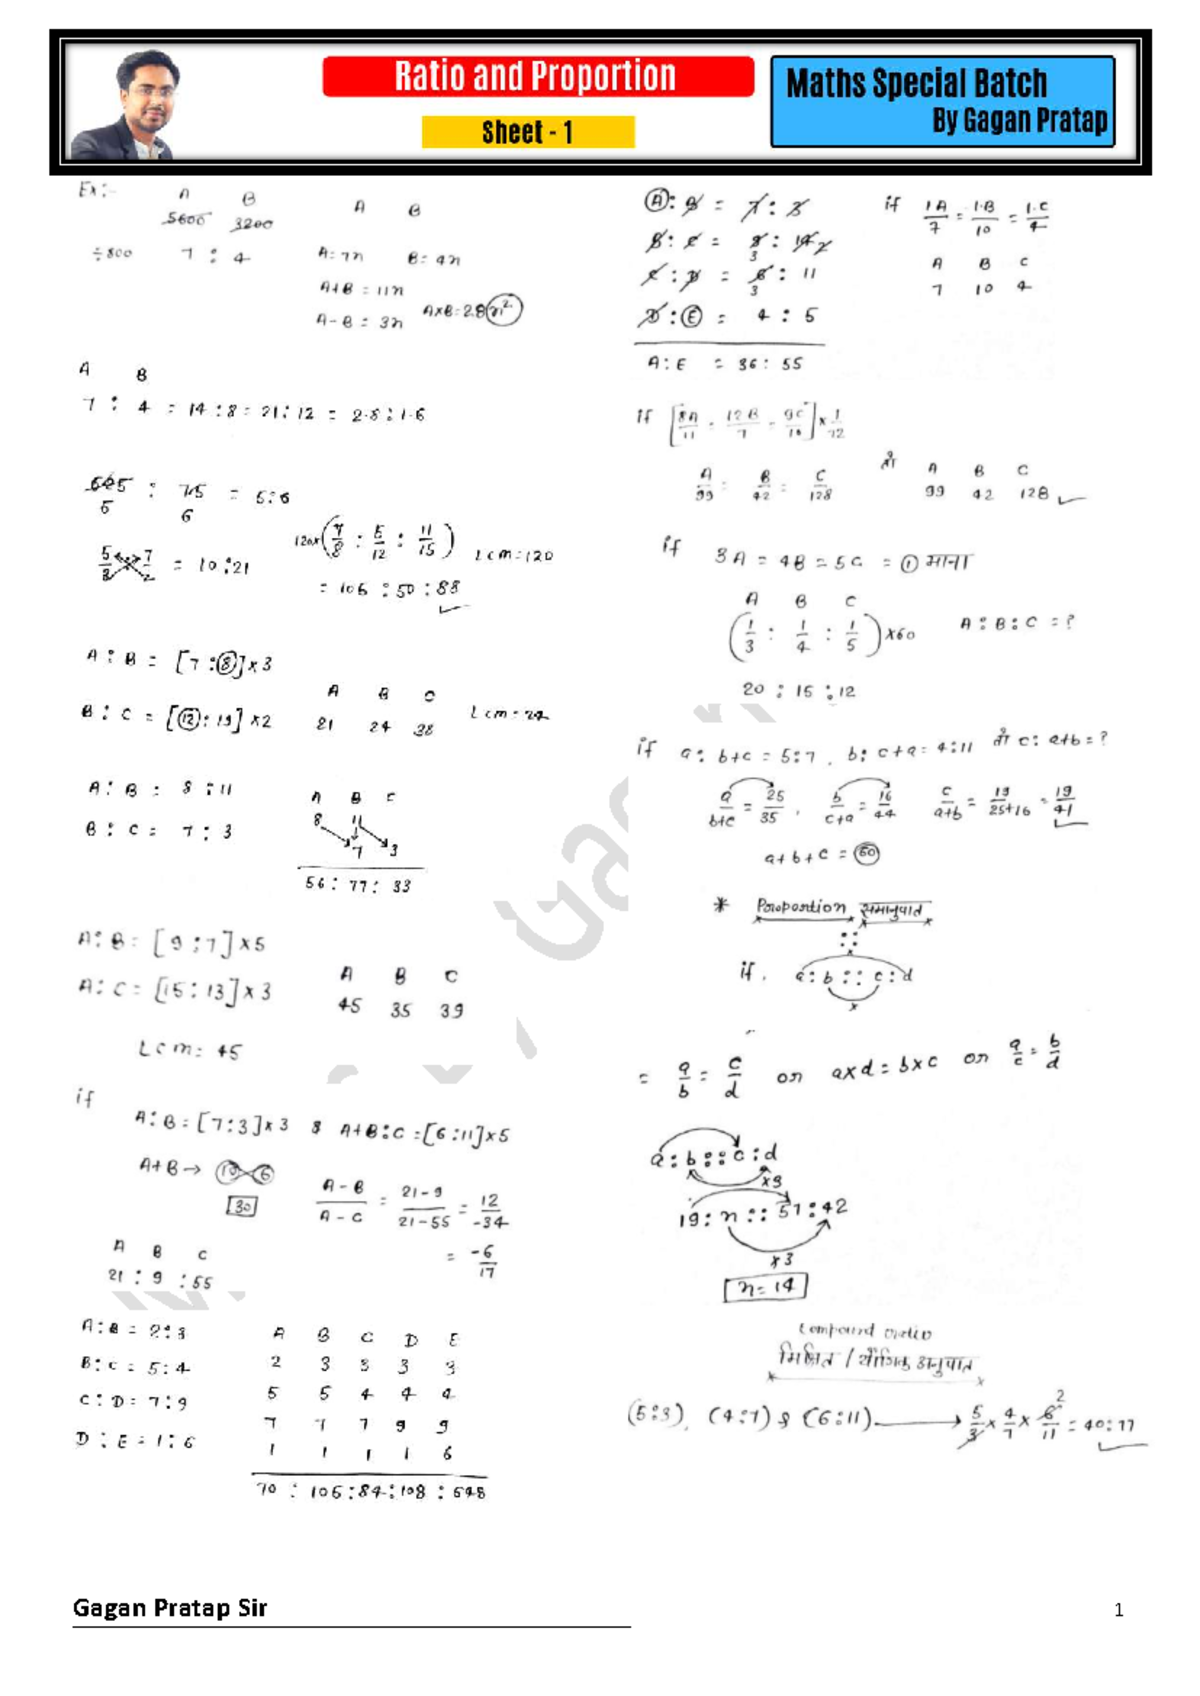 Ratio and Proportion
Sheet - 1
Maths Special Batch
By Gagan Pratap
Ex:-
A B
5600 3200
÷800 7 : 4
A B
A: 7x B: 4x
A+B = 11x
A-B = 3x
A×B = 28x²
A B
7 : 4 = 14 : 8 = 21 : 12 = 2.8 : 1.6
: 75 = 5:6
5 6
5/3 7/2 = 10:21
120×(7/8 : 5/12 : 11/15) Lcm=120
= 105 : 50 : 88
A : B = [7 : 8]×3
B : C = [12 : 19]×2
A B C
21 24 38
Lcm = 24
A : B : 8 : 11
B : C = 7 : 3
A B C
8 11
7 3
56 : 77 : 33
A : B = [9 : 7]×5
A : C = [15 : 13]×3
A B C
45 35 39
Lcm = 45
if
A:B = [7:3]×3 & A+B:C = [6:11]×5
A+B → 10 6
30
A-B/A-C = 21-9/21-55 = 12/-34
= -6/17
A B C
21 : 9 : 55
A:B = 2:3
B:C = 5:4
C:D = 7:9
D:E = 1:6
A B C D E
2 3 3 3 3
5 5 4 4 4
7 7 7 9 9
1 1 1 1 6
70 : 105 : 84 : 108 : 648
A : B = 7 : 3
B : C = 8 : 14 2
3
C : D = 6 : 11
3
D : E = 4 : 5
A : E = 36 : 55
if 1A/7 = 1·B/10 = 1·C/4
A B C
7 10 4
If [8A/11 = 12B/7 = 9C/16]×1/72
A/99 = B/42 = C/128
तो A B C
99 42 128
if 3A = 4B = 5C = 1 माना
A B C
(1/3 : 1/4 : 1/5)×60 A : B : C = ?
20 : 15 : 12
if a : b+c = 5:7, b : c+a = 4:11 तो c : a+b = ?
a/b+c = 25/35, b/c+a = 16/44 c/a+b = 19/25+16 = 19/41
a+b+c = 60
* Proportion समानुपात
::
if, a : b :: c : d
= a/b = c/d or a×d = b×c or a/c = b/d
a : b :: c : d
×3
19 : x :: 57 : 42
×3
x = 14
Compound ratio
मिश्रित / यौगिक अनुपात
(5:3), (4:7) & (6:11) → 5/3 × 4/7 × 6/11 = 40:77
2
Gagan Pratap Sir
1